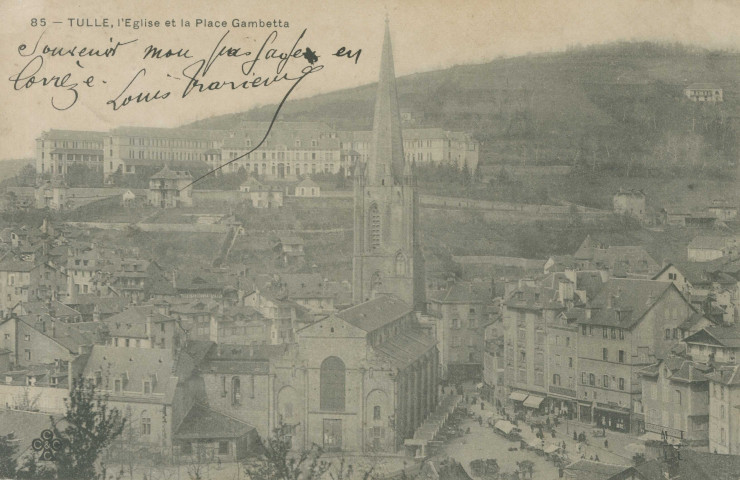 85 — TULLE, l'Eglise et la Place Gambetta
Souvenir mon passage en
Corrèze. Louis